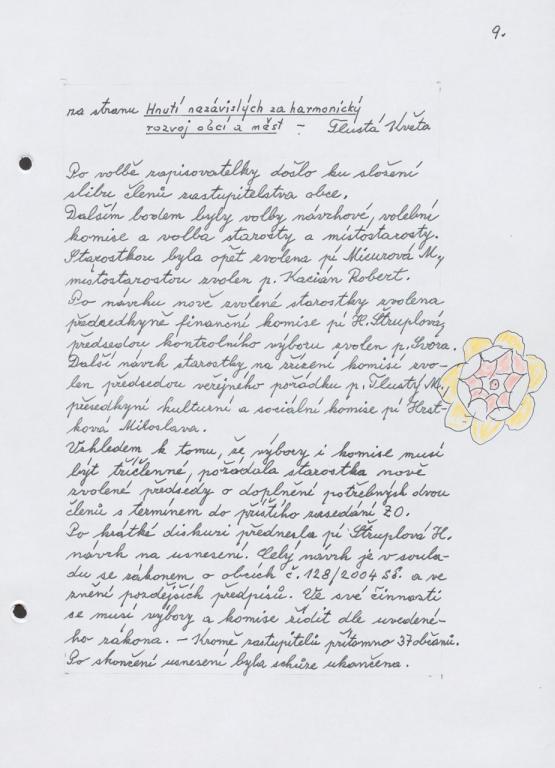 9.
na stranu Hnutí nezávislých za harmonický
rozvoj obcí a měst - Tlustá Květa
Po volbě zapisovatelky došlo ku složení
slibu členů zastupitelstva obce.
Dalším bodem byly volby návrhové, volební
komise a volba starosty a místostarosty.
Starostkou byla opět zvolena pí Micurová M.,
místostarostou zvolen p. Kacián Robert.
Po návrhu nově zvolené starostky zvolena
předsedkyně finanční komise pí H. Štruplová,
předsedou kontrolního výboru zvolen p. Svora.
Další návrh starostky na zřízení komisí zvo-
len předsedou veřejného pořádku p. Tlustý M.,
předsedkyní kulturní a sociální komise pí Hrst-
ková Miloslava.
Vzhledem k tomu, že výbory i komise musí
být tříčlenné, požádala starostka nově
zvolené předsedy o doplnění potřebných dvou
členů s termínem do příštího zasedání ZO.
Po krátké diskuzi přednesla pí Štruplová H.
návrh na usnesení. Celý návrh je v soula-
du se zákonem o obcích č. 128/2004 Sb. a ve
znění pozdějších předpisů. Ve své činnosti
se musí výbory a komise řídit dle uvedené-
ho zákona. - Kromě zastupitelů přítomno 37 občanů.
Po skončení usnesení byla schůze ukončena.